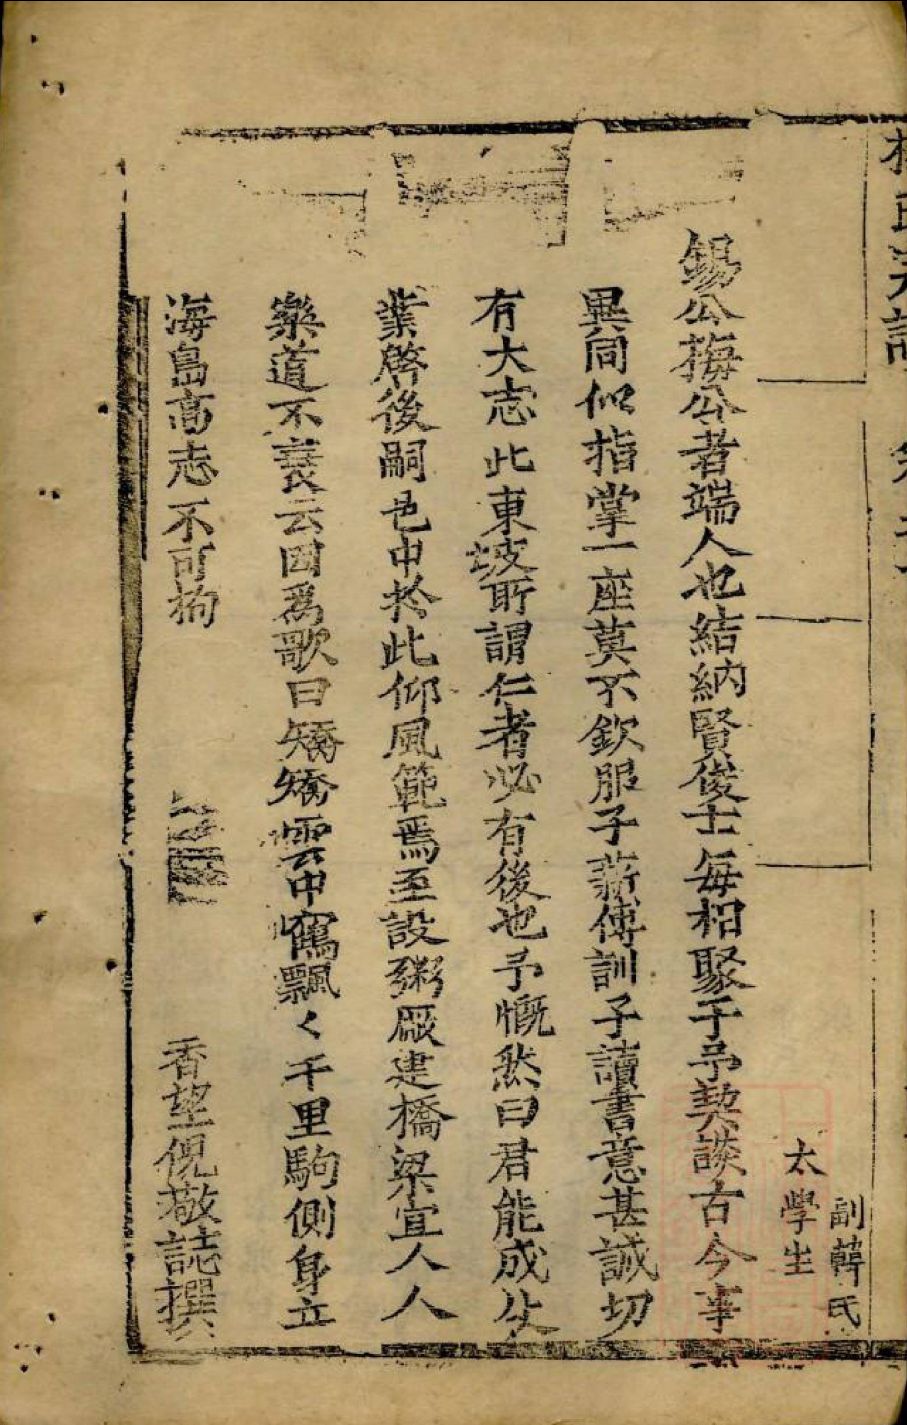 梅氏宗譜
副韓氏
太學生
錫公梅公者端人也結納賢俊士每相聚于予契談古今事
異同似指掌一座莫不欽服子薪傳訓子讀書意甚誠切
有大志此東坡所謂仁者必有後也予慨然曰君能成父
業啓後嗣邑中扵此仰風範焉至設粥厰建橋梁宜人人
樂道不衰云因爲歌曰矯矯雲中鶴飄〻千里駒側身立
海島高志不可拘
香望倪敬誌撰